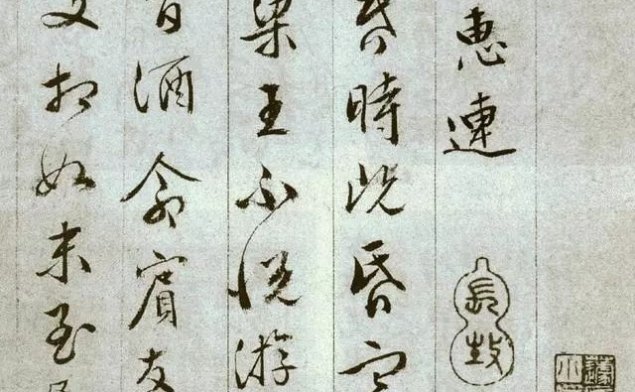 惠連
時既昏
梁王不悅游
旨酒命賓友
相如末至